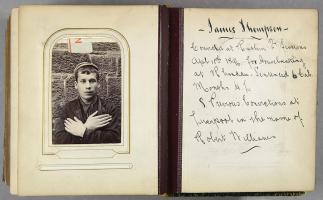 - James Thompson -
Convicted at Ruthin Q. Sessions
April 10th 1896 for housebreaking
at Rhuddlan. Sentenced 6 Cal.
Months H. L.
8 Previous Convictions at
Liverpool in the name of
Robert Williams